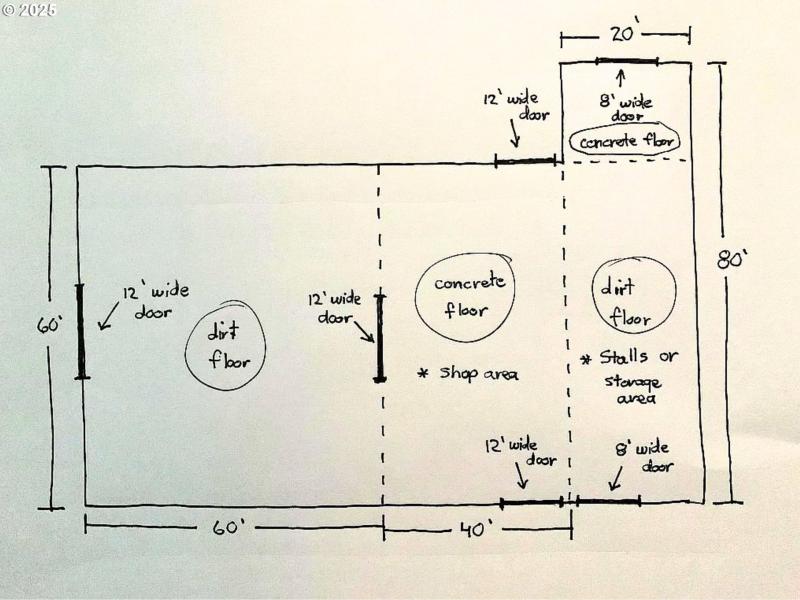 © 2025
20'
12' wide
door
8' wide
door
concrete floor
80'
60'
12' wide
door
dirt
floor
12' wide
door
concrete
floor
* shop area
dirt
floor
* Stalls or
storage
area
12' wide
door
8' wide
door
60'
40'